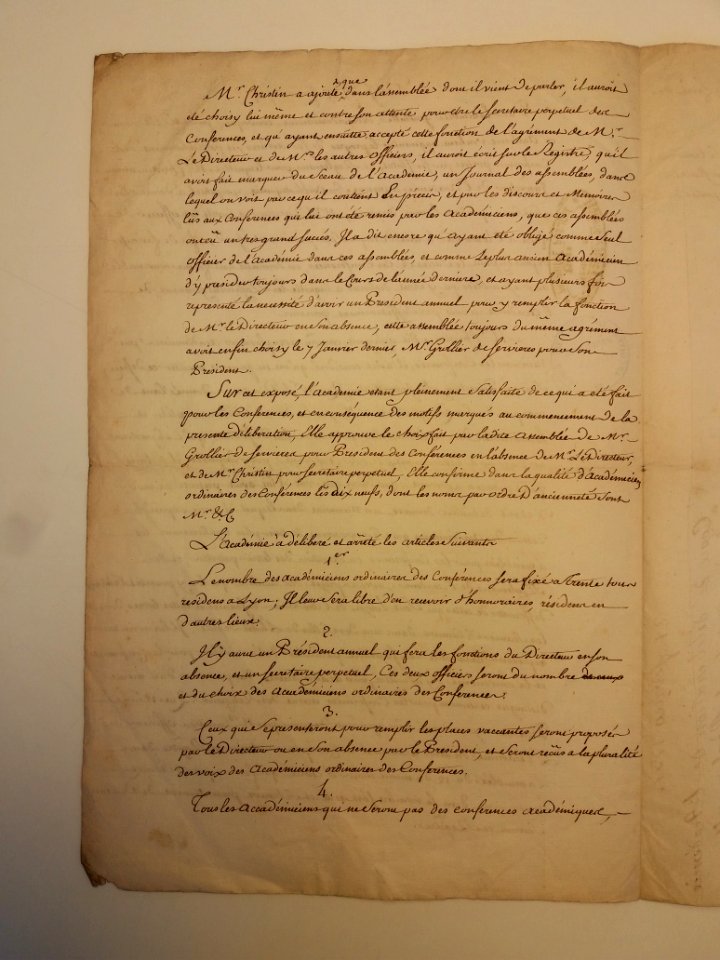 Mr. Christin a ajouté que dans l'assemblée dont il vient de parler, il auroit
été choisy lui même et contre son attente pour etre le secretaire perpetuel des
Conferences, et qu'ayant ensuitte accepté cette fonction de l'agrément de Mr.
Le Directeur et de Mrs. les autres officiers, il auroit écrit sur le Registre, qu'il
avoit fait marquer du Sceau de l'Academie, un Journal des assemblées, dans
lequel on voit par ce qu'il contient En précis, et par les discours et Memoires
lûs aux Conferences qui lui ont été remis par les Académiciens, que ces assemblées
ont eû un tres grand succés. Il a dit encore qu'ayant été obligé, comme Seul
officier de l'Académie dans ces assemblées, et comme Le plus ancien Académicien
d'y presider toujours dans le Cours de l'année derniere, et ayant plusieurs fois
representé la necessité d'avoir un President annuel pour y remplir la fonction
de Mr. le Directeur en Son absence, cette assemblée toujours du même agrément
avoit enfin choisy le 7 Janvier dernier, Mr. Grollier de Servieres pour Son
President.
Sur cet exposé, l'académie etant pleinement Satisfaite de ce qui a été fait
pour les Conferences, et en conséquence des motifs marqués au commencement de la
presente déliberation, Elle approuve le choix fait par ladite assemblée de Mr.
Grollier de Servieres pour President des Conferences en l'absence de Mr. Le Directeur,
et de Mr. Christin pour secretaire perpetuel, Elle confirme dans la qualité d'Académiciens
ordinaires des Conferences les dix neufs, dont les noms par ordre D'ancienneté sont
Mrs. &c
L'académie a déliberé et arrêté les articles Suivants
1er.
Le nombre des académiciens ordinaires des Conferences sera fixé a trente tous
residens a Lyon; Il leur Sera libre d'en recevoir d'honnoraires, résidens en
d'autres lieux.
2.
Il y aura un Président annuel qui fera les fonctions du Directeur en son
absence, et un secretaire perpetuel, Ces deux officiers seront du nombre
et du choix des Académiciens ordinaires des Conferences.
3.
Ceux qui Se presenteront pour remplir les places vaccantes seront proposés
par le Directeur ou en Son absence par le President, et Seront recûs a la pluralité
des voix des Académiciens ordinaires des Conferences.
4.
Tous les Accadémiciens qui ne Seront pas des conferences académiques,